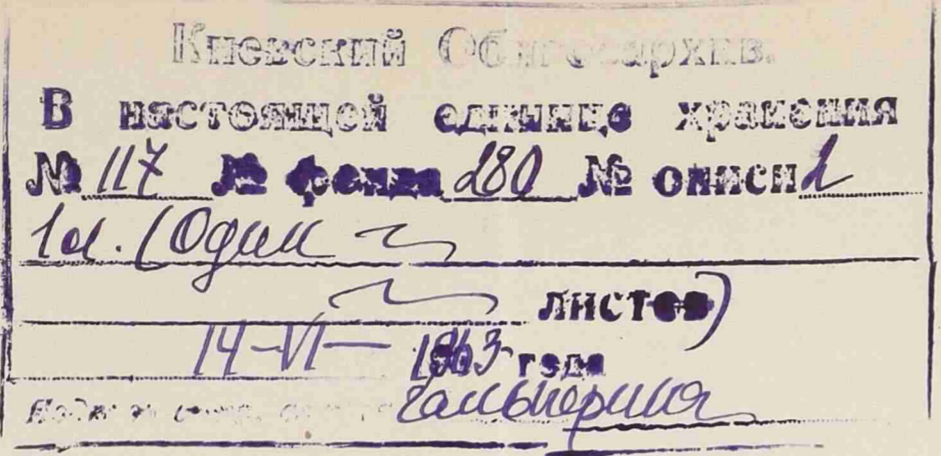 Киевский Облгосархив.
В настоящей единице хранения
№ 117 № фонда 280 № описи 2
1 л. (Один
листов)
14-VI- 1963 года
Гальперина